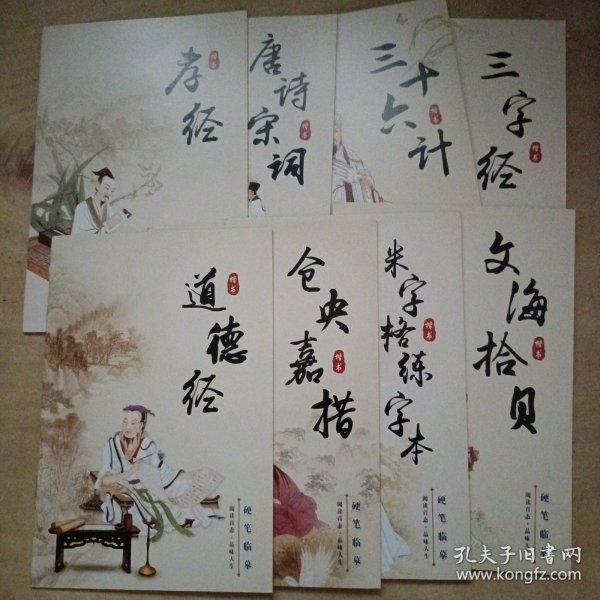 孝经
楷书
唐诗宋词
楷书
三十六计
楷书
三字经
楷书
道德经
楷书
硬笔临摹
阅读百态·品味人生
仓央嘉措
楷书
硬笔临摹
阅读百态·品味人生
米字格练字本
楷书
硬笔临摹
阅读百态·品味人生
文海拾贝
楷书
硬笔临摹
孔夫子旧书网
www.kongfz.com